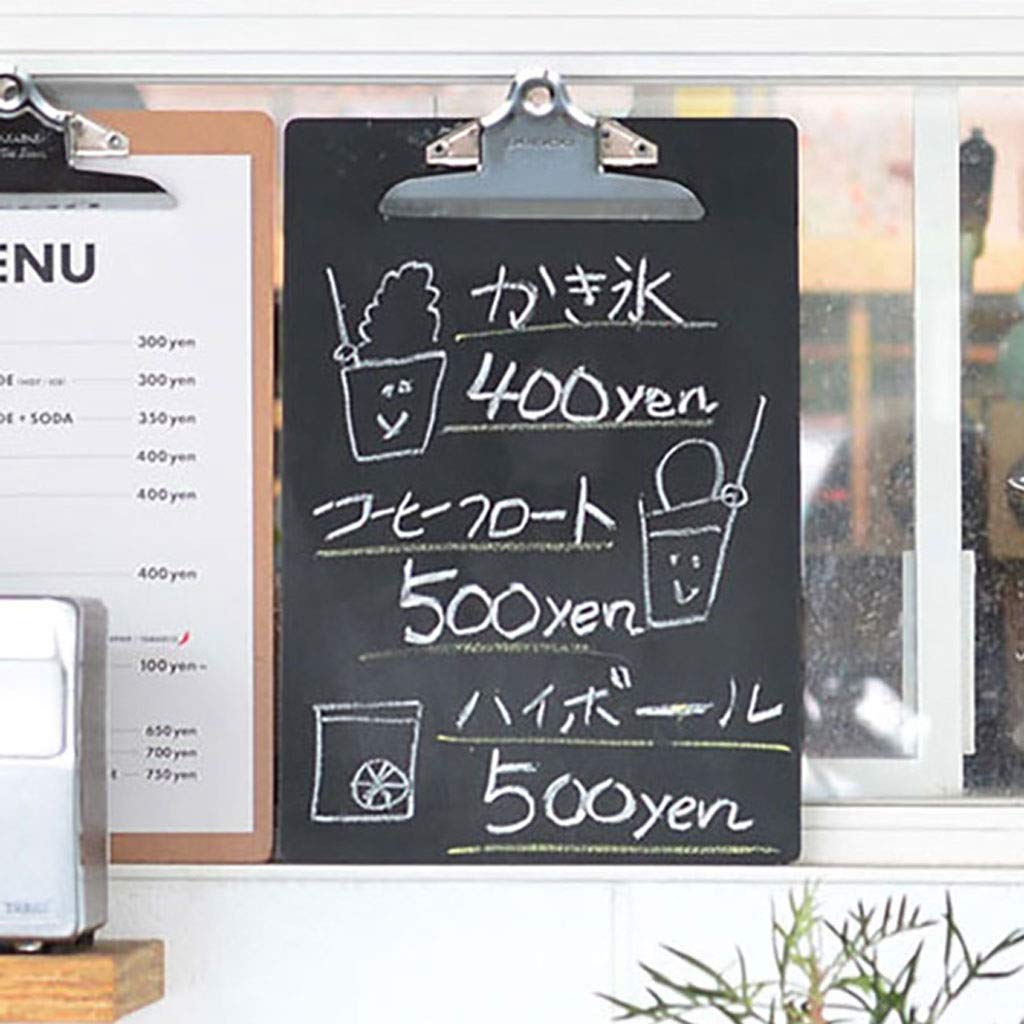 ENU
300 yen
DE 300 yen
DE + SODA 350 yen
400 yen
400 yen
400 yen
100 yen~
650 yen
700 yen
750 yen
かき氷
400yen
コーヒーフロート
500yen
ハイボール
500yen